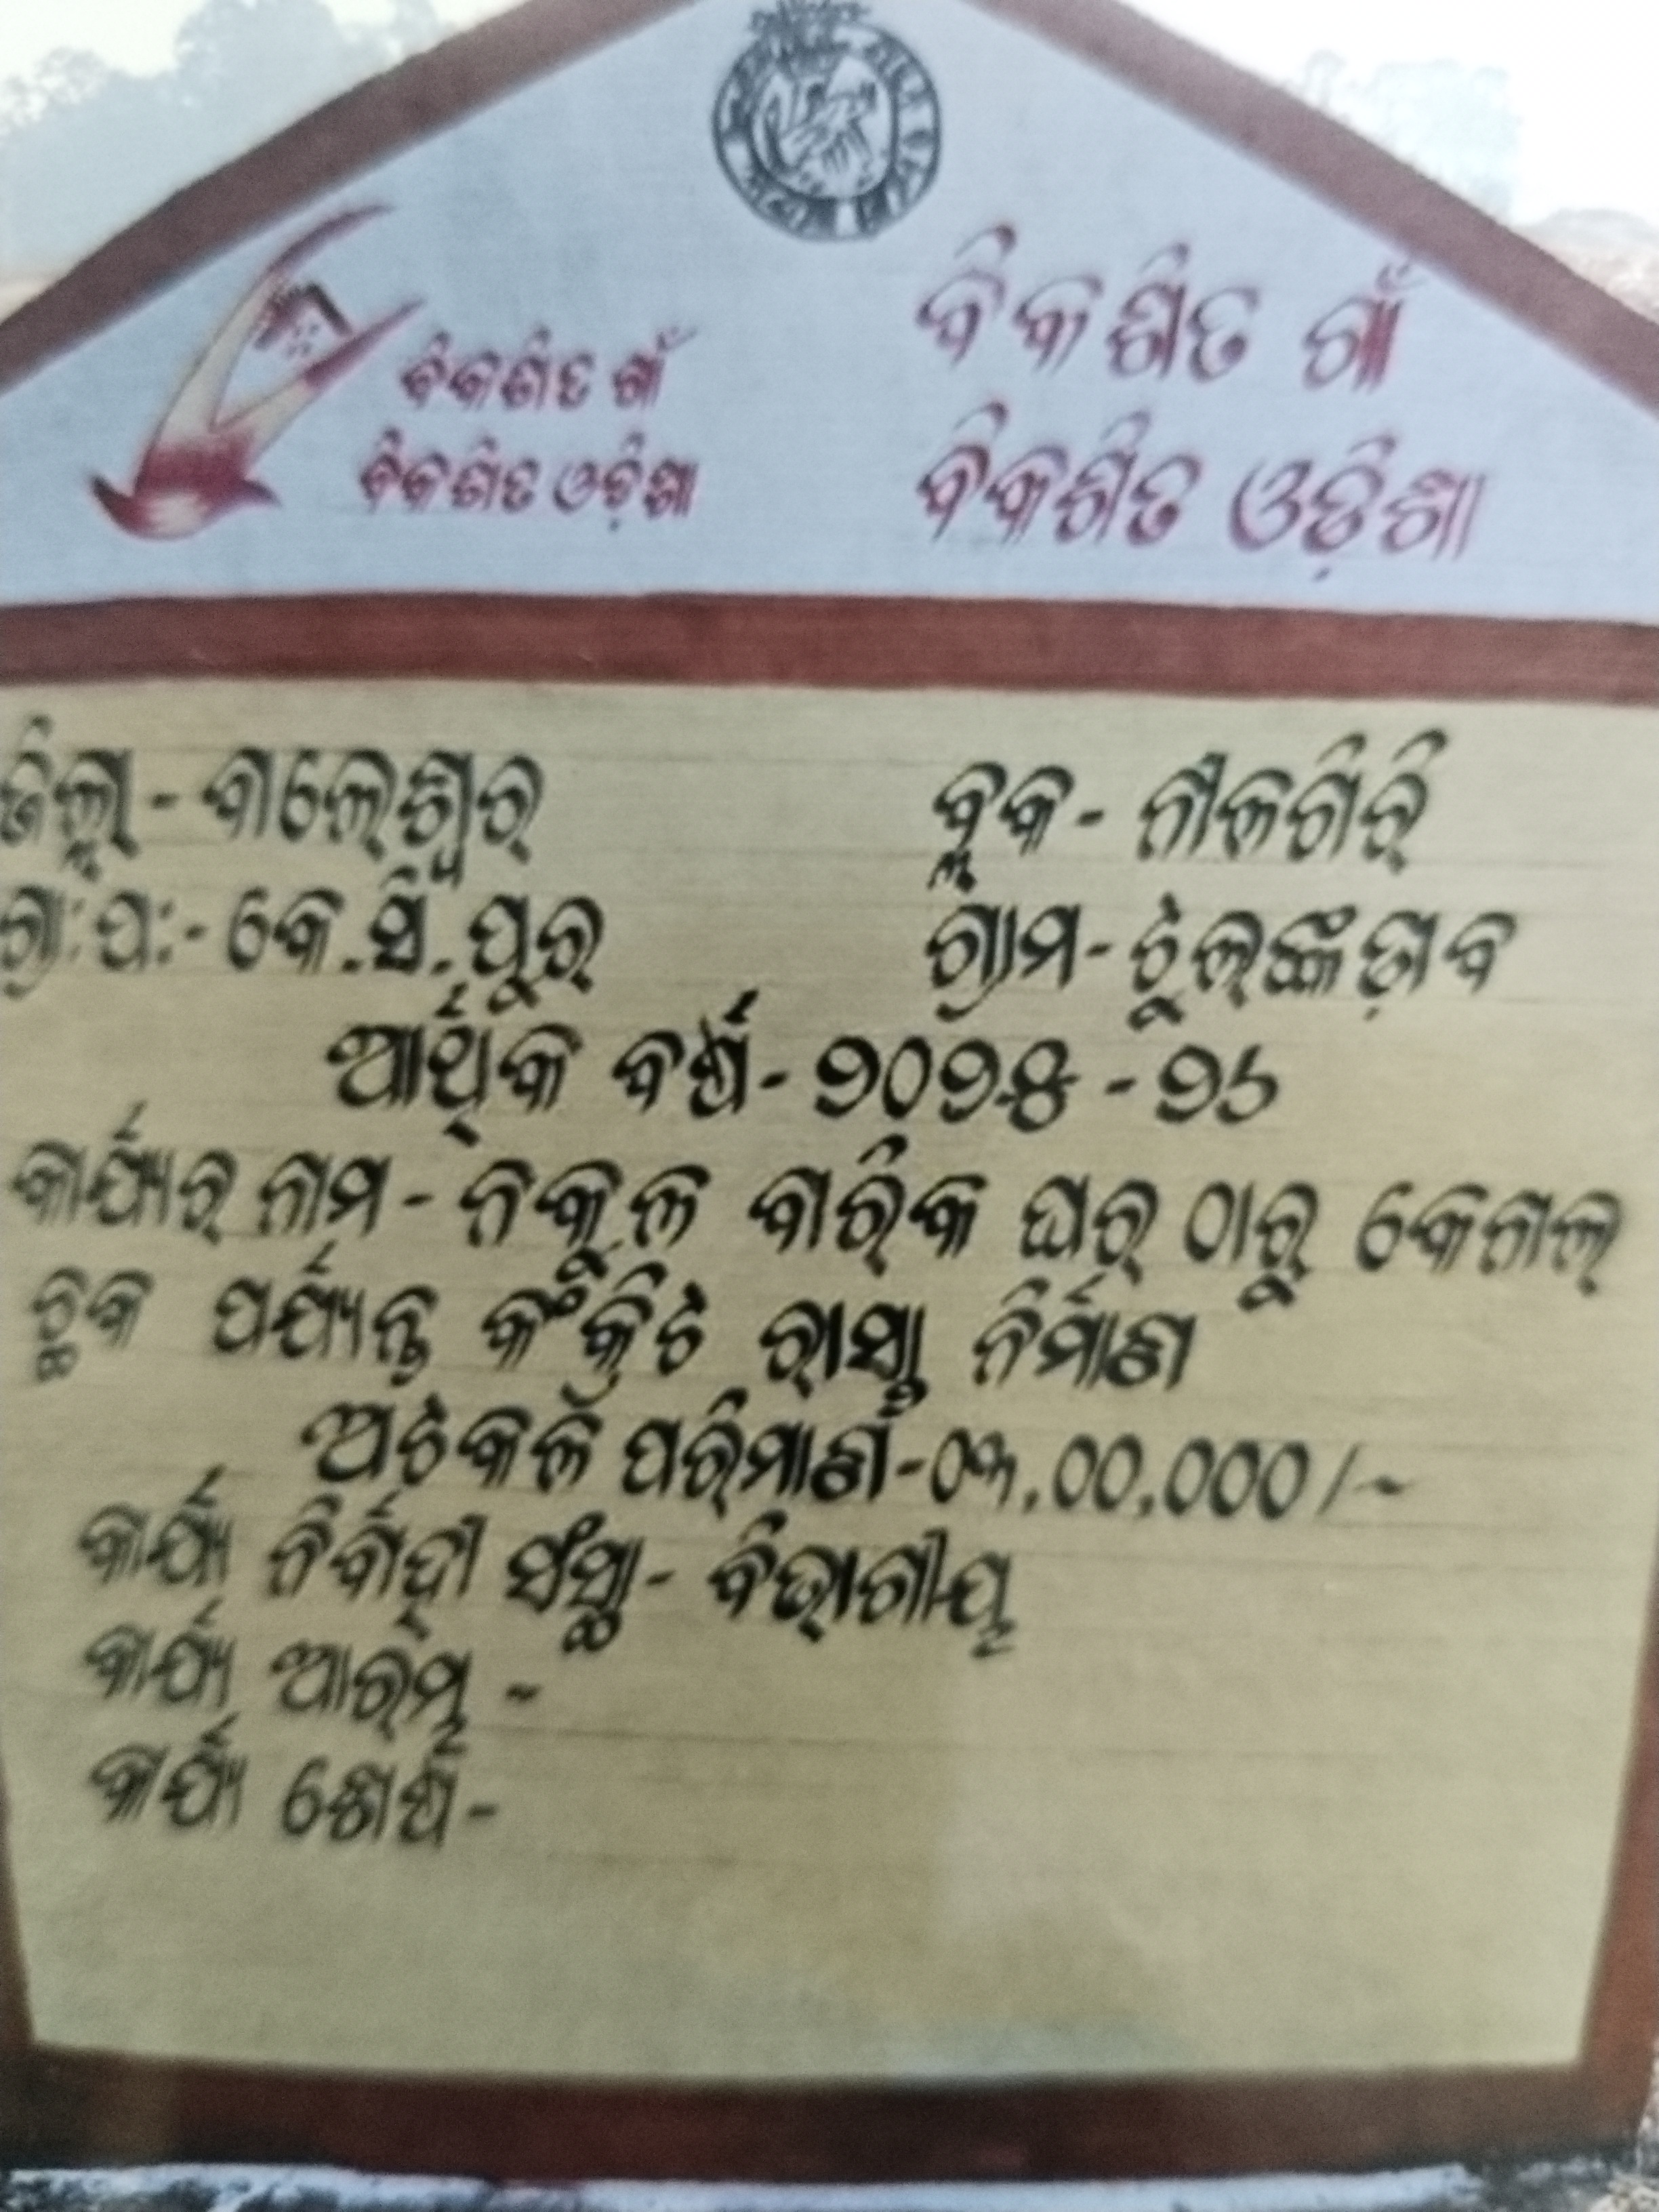 ବିକଶିତ ଗାଁ
ବିକଶିତ ଓଡ଼ିଶା
ବିକଶିତ ଗାଁ
ବିକଶିତ ଓଡ଼ିଶା
ଜିଲ୍ଲା - ବାଲେଶ୍ୱର ବ୍ଲକ - ନୀଳଗିରି
ଗ୍ରା:ପ:- କେ.ସି.ପୁର ଗ୍ରାମ - ଟୁଲଙ୍କଡ଼ାବ
ଆର୍ଥିକ ବର୍ଷ - ୨୦୨୫ - ୨୬
କାର୍ଯ୍ୟର ନାମ - ନକୁଳ ବାରିକ ଘର ଠାରୁ କେନାଲ
ଛକ ପର୍ଯ୍ୟନ୍ତ କଂକ୍ରିଟ ରାସ୍ତା ନିର୍ମାଣ
ଅଟକଳ ପରିମାଣ - ୦୩,୦୦,୦୦୦/-
କାର୍ଯ୍ୟ ନିର୍ବାହୀ ସଂସ୍ଥା - ବିଭାଗୀୟ
କାର୍ଯ୍ୟ ଆରମ୍ଭ -
କାର୍ଯ୍ୟ ଶେଷ -